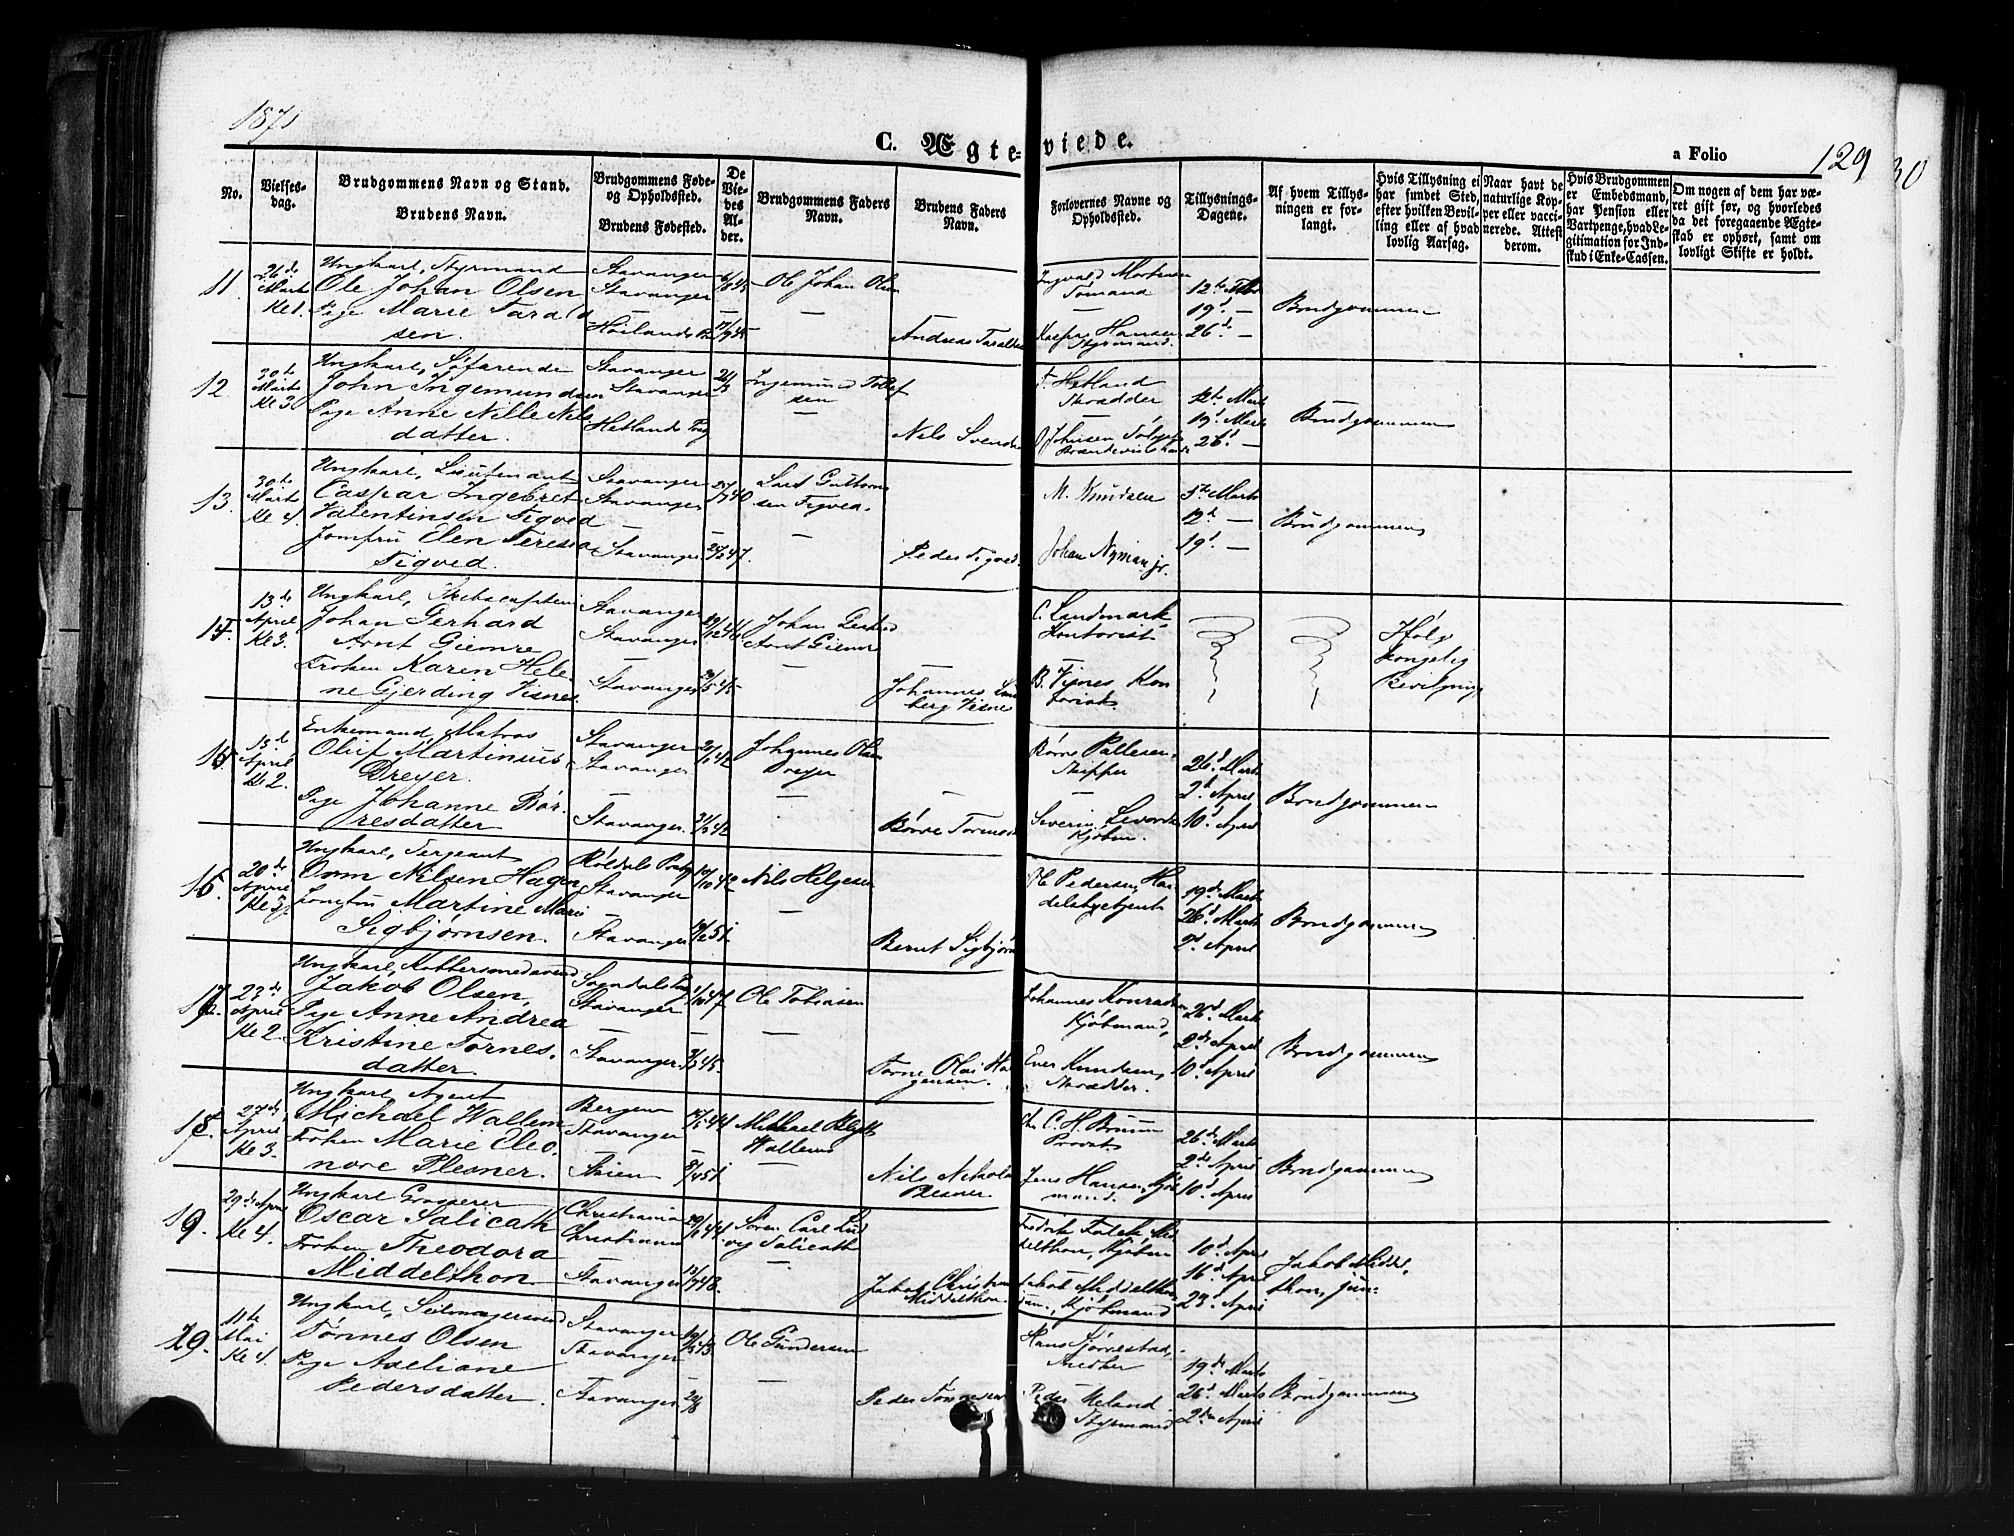 1871
C. Ægteviede.
a Folio
129
30
No.
Vielses-dag.
Brudgommens Navn og Stand.
Brudens Navn.
Brudgommens Føde- og Opholdssted.
Brudens Fødested.
De Viedes Alder.
Brudgommens Faders Navn.
Brudens Faders Navn.
Forlovernes Navne og Opholdssted.
Tillysnings-Dagene.
Af hvem Tillysningen er forlangt.
Hvis Tillysning ei har fundet Sted, efter hvilken Bevilling eller af hvad lovlig Aarsag.
Naar havt de naturlige Kopper eller vaccinerede. Attest derom.
Hvis Brudgommen er Embedsmand, har Pension eller Vartpenge, hvad Legitimation for Indskud i Enke-Cassen.
Om nogen af dem har været gift før, og hvorledes da det foregaaende Ægteskab er ophørt, samt om lovligt Skifte er holdt.
11. 26de Marts Kl
Ungkarl, Styrmand
Ole Johan Olsen
Pige Marie Tarald
sen.
Stavanger
Stavanger
Høilands
Ole Johan Olsen
Andreas
Ingvald Mortensen
Kasper Hansen
Styrmand.
12te
19d —
26d —
Brudgommen
12 30te Marts Kl 3
Ungkarl, Søfarende
John Ingemundsen
Pige Anne Nille Nils
datter.
Stavanger
Stavanger
Hetlands
Ingemund Tollef
sen
Nils Svends
Hetland
Skrædder
Johnsen
12te Marts
19d Marts
26d —
Brudgommen
13. 30te Marts Kl 4
Ungkarl, Lieutenant
Caspar Ingebret
Valentinsen Tigved
Jomfru Elen Teresia
Tigved.
Stavanger
Stavanger
Stavanger
40
47.
Guttorm
sen Tigved.
Peder Tigved
M. Knudsen
Johan Nyman jr.
5te Marts
12d —
19d —
Brudgommen
14. 13de April Kl 3.
Ungkarl, Skibscaptein
Johan Gerhard
Arnt Giemre
Frøken Karen Hele
ne Gjerding Visnes
Stavanger
Stavanger
Stavanger
Johan
Arnt Giemre
Johannes
berg Visne
C. Landmark
Kontorist
B. Visnes Kon
torist.
Ifølge
kongelig
Bevilgning
15 13d April Kl 2.
Enkemand, Matros
Oluf Martinius
Dreyer.
Pige Johanne Bør
resdatter
Stavanger
Stavanger
Stavanger.
Johannes Olsen
Dreyer
Børre
Børre Pallesen,
Skipper
Severin
26d Marts
2d April
10d April
Brudgommen
16. 20de April
Ungkarl, Sergeant
Orm Nilsen Hagen
Jomfru Martine Marie
Sigbjørnsen.
Røldals
Stavanger
Stavanger
42
51.
Nils Helgesen
Bernt Sigbjørn
Ole Pedersen, Han
delsbetjent
19de Marts
26d Marts
2d April
Brudgommen
17. 23de April Kl 2
Ungkarl, Kobbersmedsvend
Jakob Olsen,
Pige Anne Andrea
Kristine Tornes.
datter.
Sogndals
Stavanger
Stavanger.
47
45.
Ole Tobiasen
Torne Olai Ha
gensen.
Johannes
Kjøbmand,
Knudsen,
Skrædder.
26d Marts
2de April
10d April
Brudgommen
18. 27de April Kl 3.
Ungkarl Agent
Michael Wallem
Frøken Marie Eleo
nore Plesner.
Bergen
Stavanger
Skien
44
51
Michael
Wallem
Nils Nikolai
Plesner.
C. H. Bruun
Privat
Jens Hansen, Kjøb
mand.
26de Marts
2de April
10d April
Brudgommen
19. 29de April Kl 4.
Ungkarl Grosserer
Oscar Salicath
Frøken Theodora
Middelthon
Christiania
Christiania
Stavanger
44
48.
Søren Carl Lud
vig Salicath
Jakob Christian
Middelthon.
Fredrik Falck Mid
delthon, Kjøbm
Jakob Middelthon
Kjøbmand
10d April
16d April
23d April
Jakob Middel
thon, jun.
11te Mai Kl 4.
Ungkarl, Seilmagersvend
Tønnes Olsen
Pige Axeliane
Pedersdatter.
Stavanger
Stavanger
Stavanger
Ole Gundersen
Peder Tønnesen
Hans Sjørrestad,
Snedker
Peder Meland
Styrmand
19de Marts
26d Marts
2den April
Brudgommen